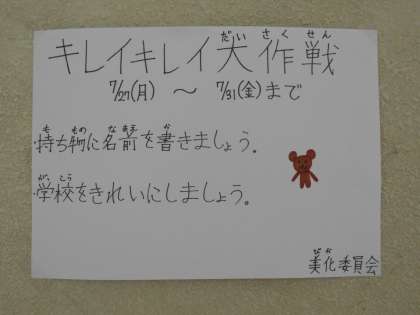 キレイキレイ大作戦
7/27(月) ～ 7/31(金)まで
・持ち物に名前を書きましょう。
・学校をきれいにしましょう。
美化委員会